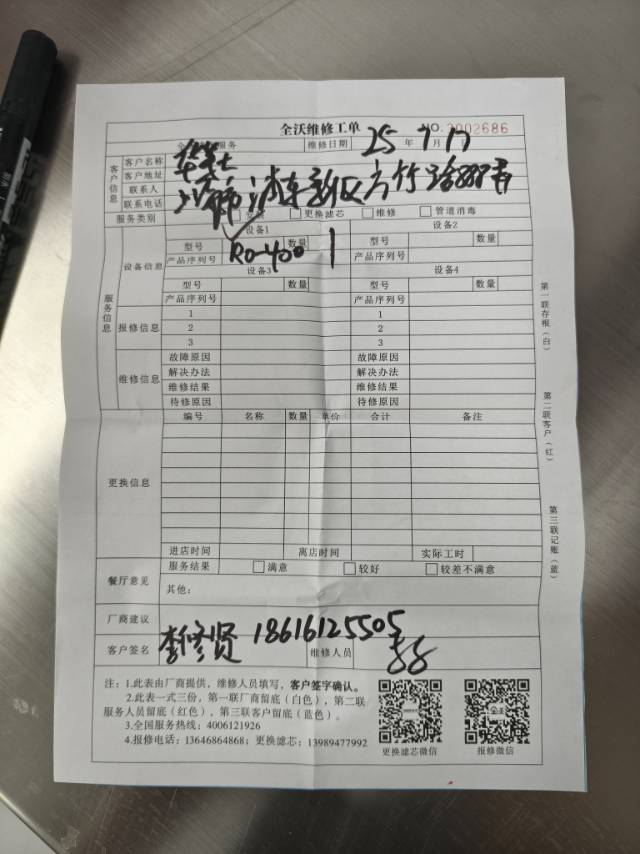 全沃维修工单 NO.2002686
服务 维修日期 25 年 7 月 17
客户信息 客户名称 华莱士
客户地址 上海市浦东新区六竹路888弄
联系人
联系电话
服务类别 安装 更换滤芯 维修 管道消毒
服务信息
设备信息 设备1 设备2
型号 RO-400 数量 1 型号 数量
产品序列号 产品序列号
设备3 设备4
型号 数量 型号 数量
产品序列号 产品序列号
报修信息 1 1
2 2
3 3
维修信息 故障原因 故障原因
解决办法 解决办法
维修结果 维修结果
待修原因 待修原因
更换信息 编号 名称 数量 单价 合计 备注
进店时间 离店时间 实际工时
餐厅意见 服务结果 满意 较好 较差不满意
其他:
厂商建议
客户签名 李修贤 18616125505 维修人员
注:1.此表由厂商提供,维修人员填写,客户签字确认。
2.此表一式三份,第一联厂商留底(白色),第二联
服务人员留底(红色),第三联客户留底(蓝色)。
3.全国服务热线:4006121926
4.报修电话:13646864868;更换滤芯:13989477992
更换滤芯微信 报修微信
第一联存根(白)
第二联客户(红)
第三联记账(蓝)